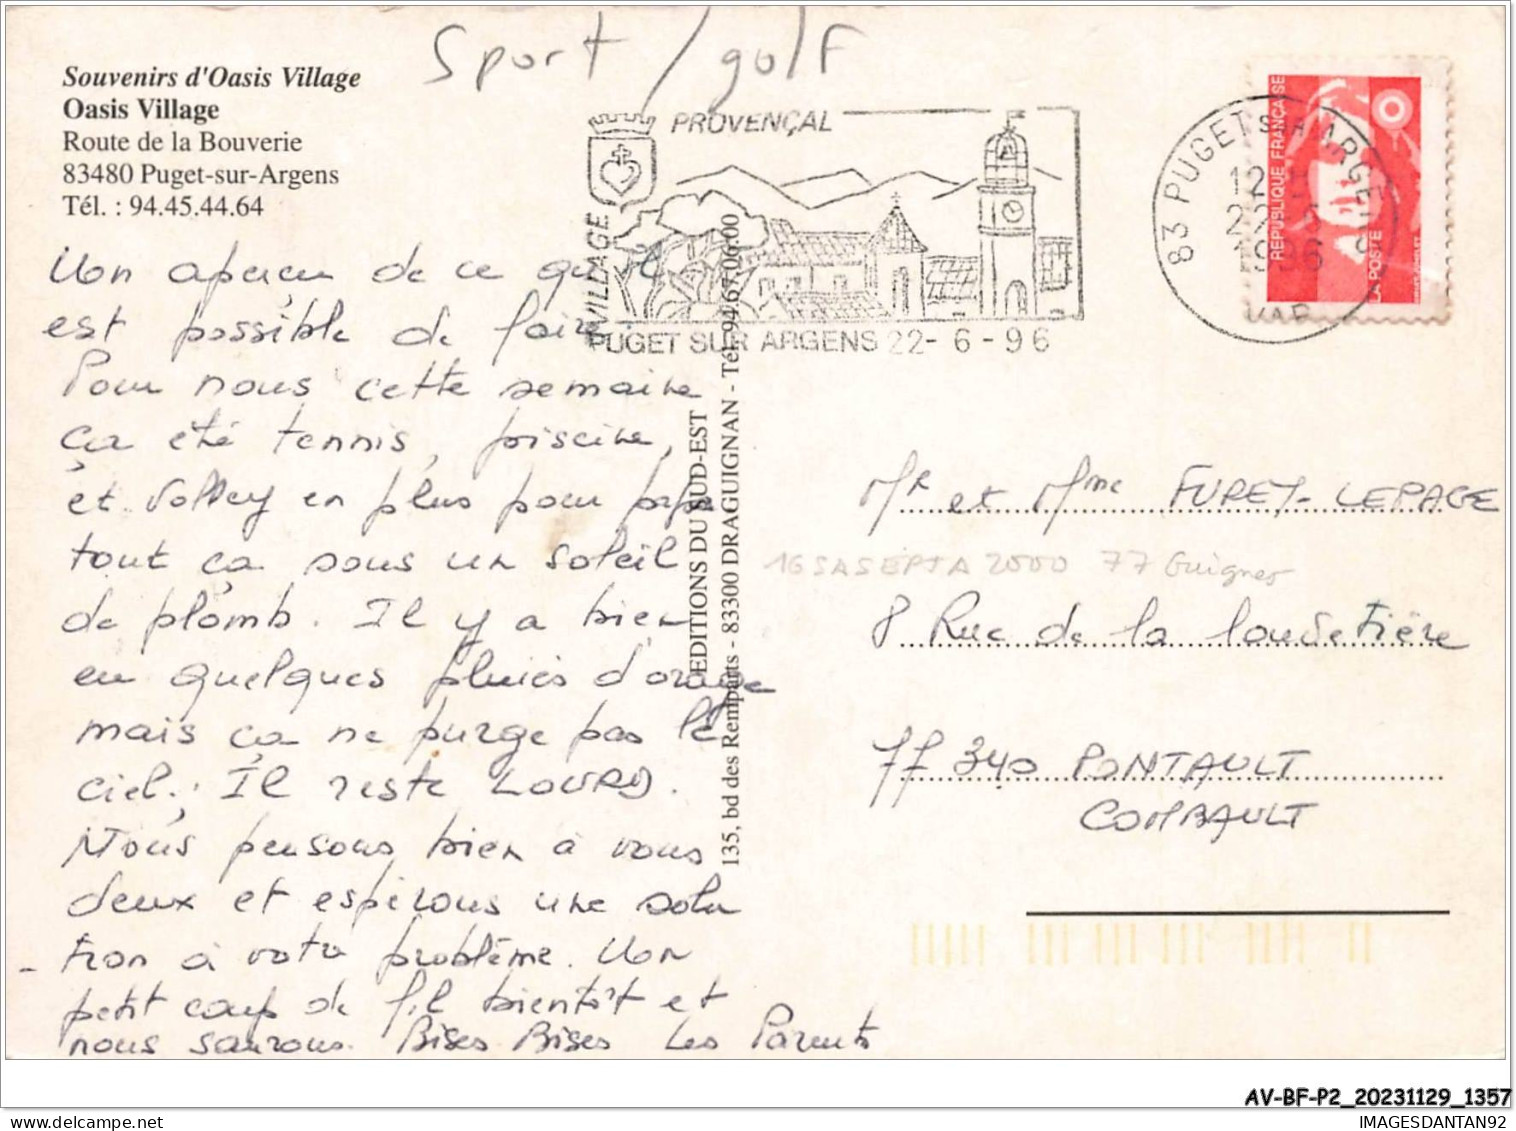 Sport / golf
Souvenirs d'Oasis Village
Oasis Village
Route de la Bouverie
83480 Puget-sur-Argens
Tél. : 94.45.44.64
VILLAGE
PROVENÇAL
PUGET SUR ARGENS 22-6-96
83 PUGET S/ ARGENS
12
22
1996
VAR
REPUBLIQUE FRANÇAISE
LA POSTE
Un aperçu de ce qu'il
est possible de faire.
Pour nous cette semaine
ça été tennis, piscine,
et volley en plus pour papa
tout ça sous un soleil
de plomb. Il y a bien
eu quelques pluies d'orage
mais ça ne purge pas le
ciel. Il reste LOURD.
Nous pensons bien à vous
deux et espérons une solu
tion à votre problème. Un
petit coup de fil bientôt et
nous saurons. Bises Bises Les Parents
EDITIONS DU SUD-EST
135, bd des Remparts - 83300 DRAGUIGNAN - Tél. 94.67.06.00
Mr et Mme FURET-LEPAGE
8 Rue de la
77 340 PONTAULT
COMBAULT
AV-BF-P2_20231129_1357
IMAGESDANTAN92